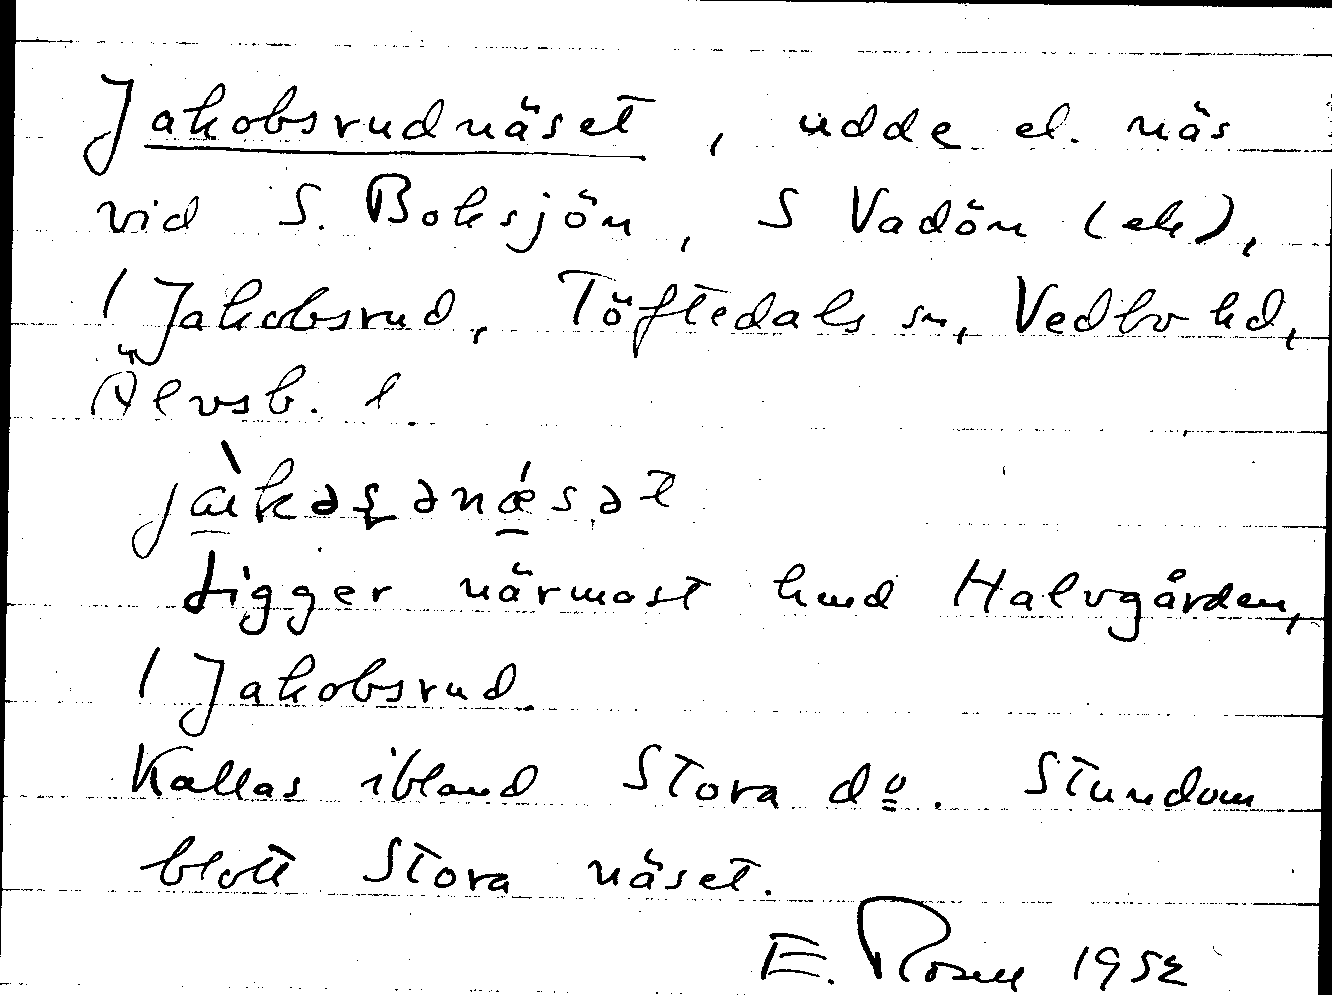 Jakobsrudnäset, udde el. näs
vid S. Boksjön, S Vadön (ek),
/ Jakobsrud, Töftedals sn, Vedbo hd,
Älvsb. l.
jæ̀kəʂənǽsət
Ligger närmast hmd Halvgården,
/ Jakobsrud.
Kallas ibland Stora dº. Stundom
blott Stora näset.
E. Rosell 1952